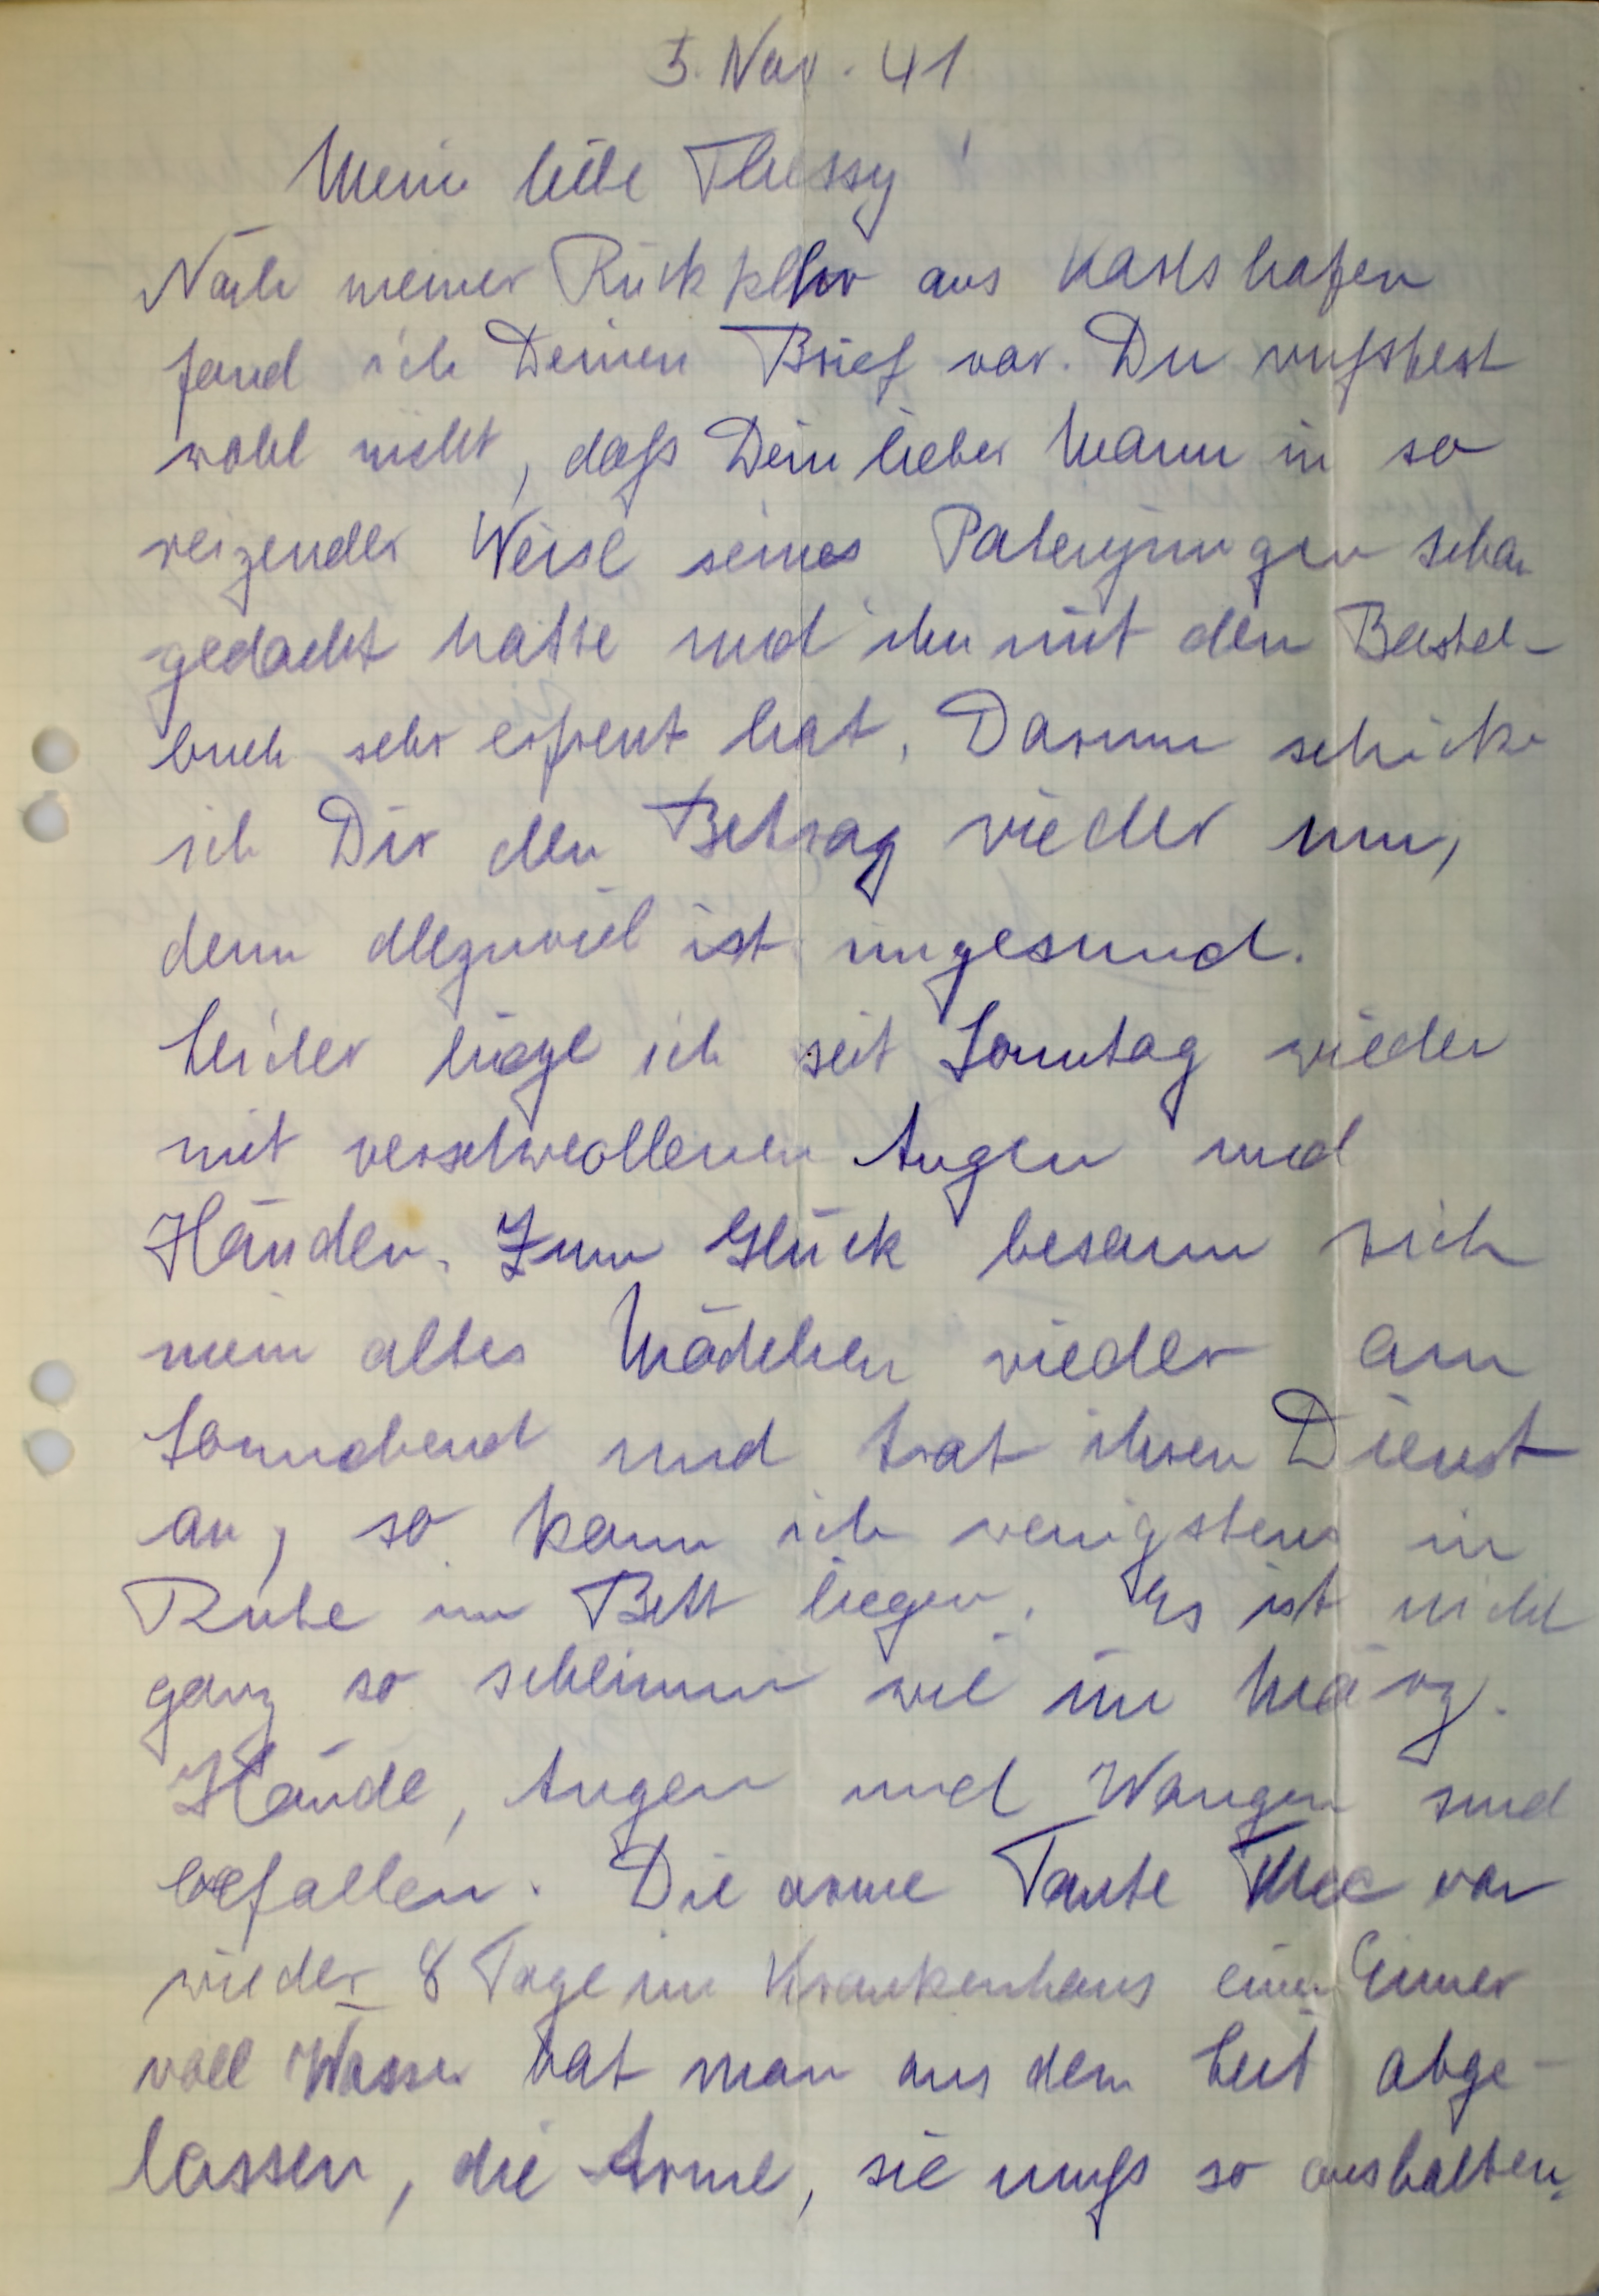 5. Nov. 41
Meine liebe Thessy!
Nach meiner Rückkehr aus Karlshafen
fand ich Deinen Brief vor. Du wußtest
wohl nicht, daß Dein lieber Mann in so
reizender Weise seines Patenjungen schon
gedacht hatte und ihn mit dem Bastel-
buch sehr erfreut hat. Darum schicke
ich Dir den Betrag wieder um,
denn allzuviel ist ungesund.
Leider liege ich seit Sonntag wieder
mit verschwollenen Augen und
Händen. Zum Glück besann sich
mein altes Mädchen wieder am
Sonnabend und trat ihren Dienst
an, so kann ich wenigstens in
Ruhe im Bett liegen. Es ist nicht
ganz so schlimm wie im März.
Hände, Augen und Wangen sind
befallen. Die arme Tante war
wieder 8 Tage im Krankenhaus einen Eimer
voll Wasser hat man aus dem Leib abge-
lassen, die Arme, sie muß so aushalten.